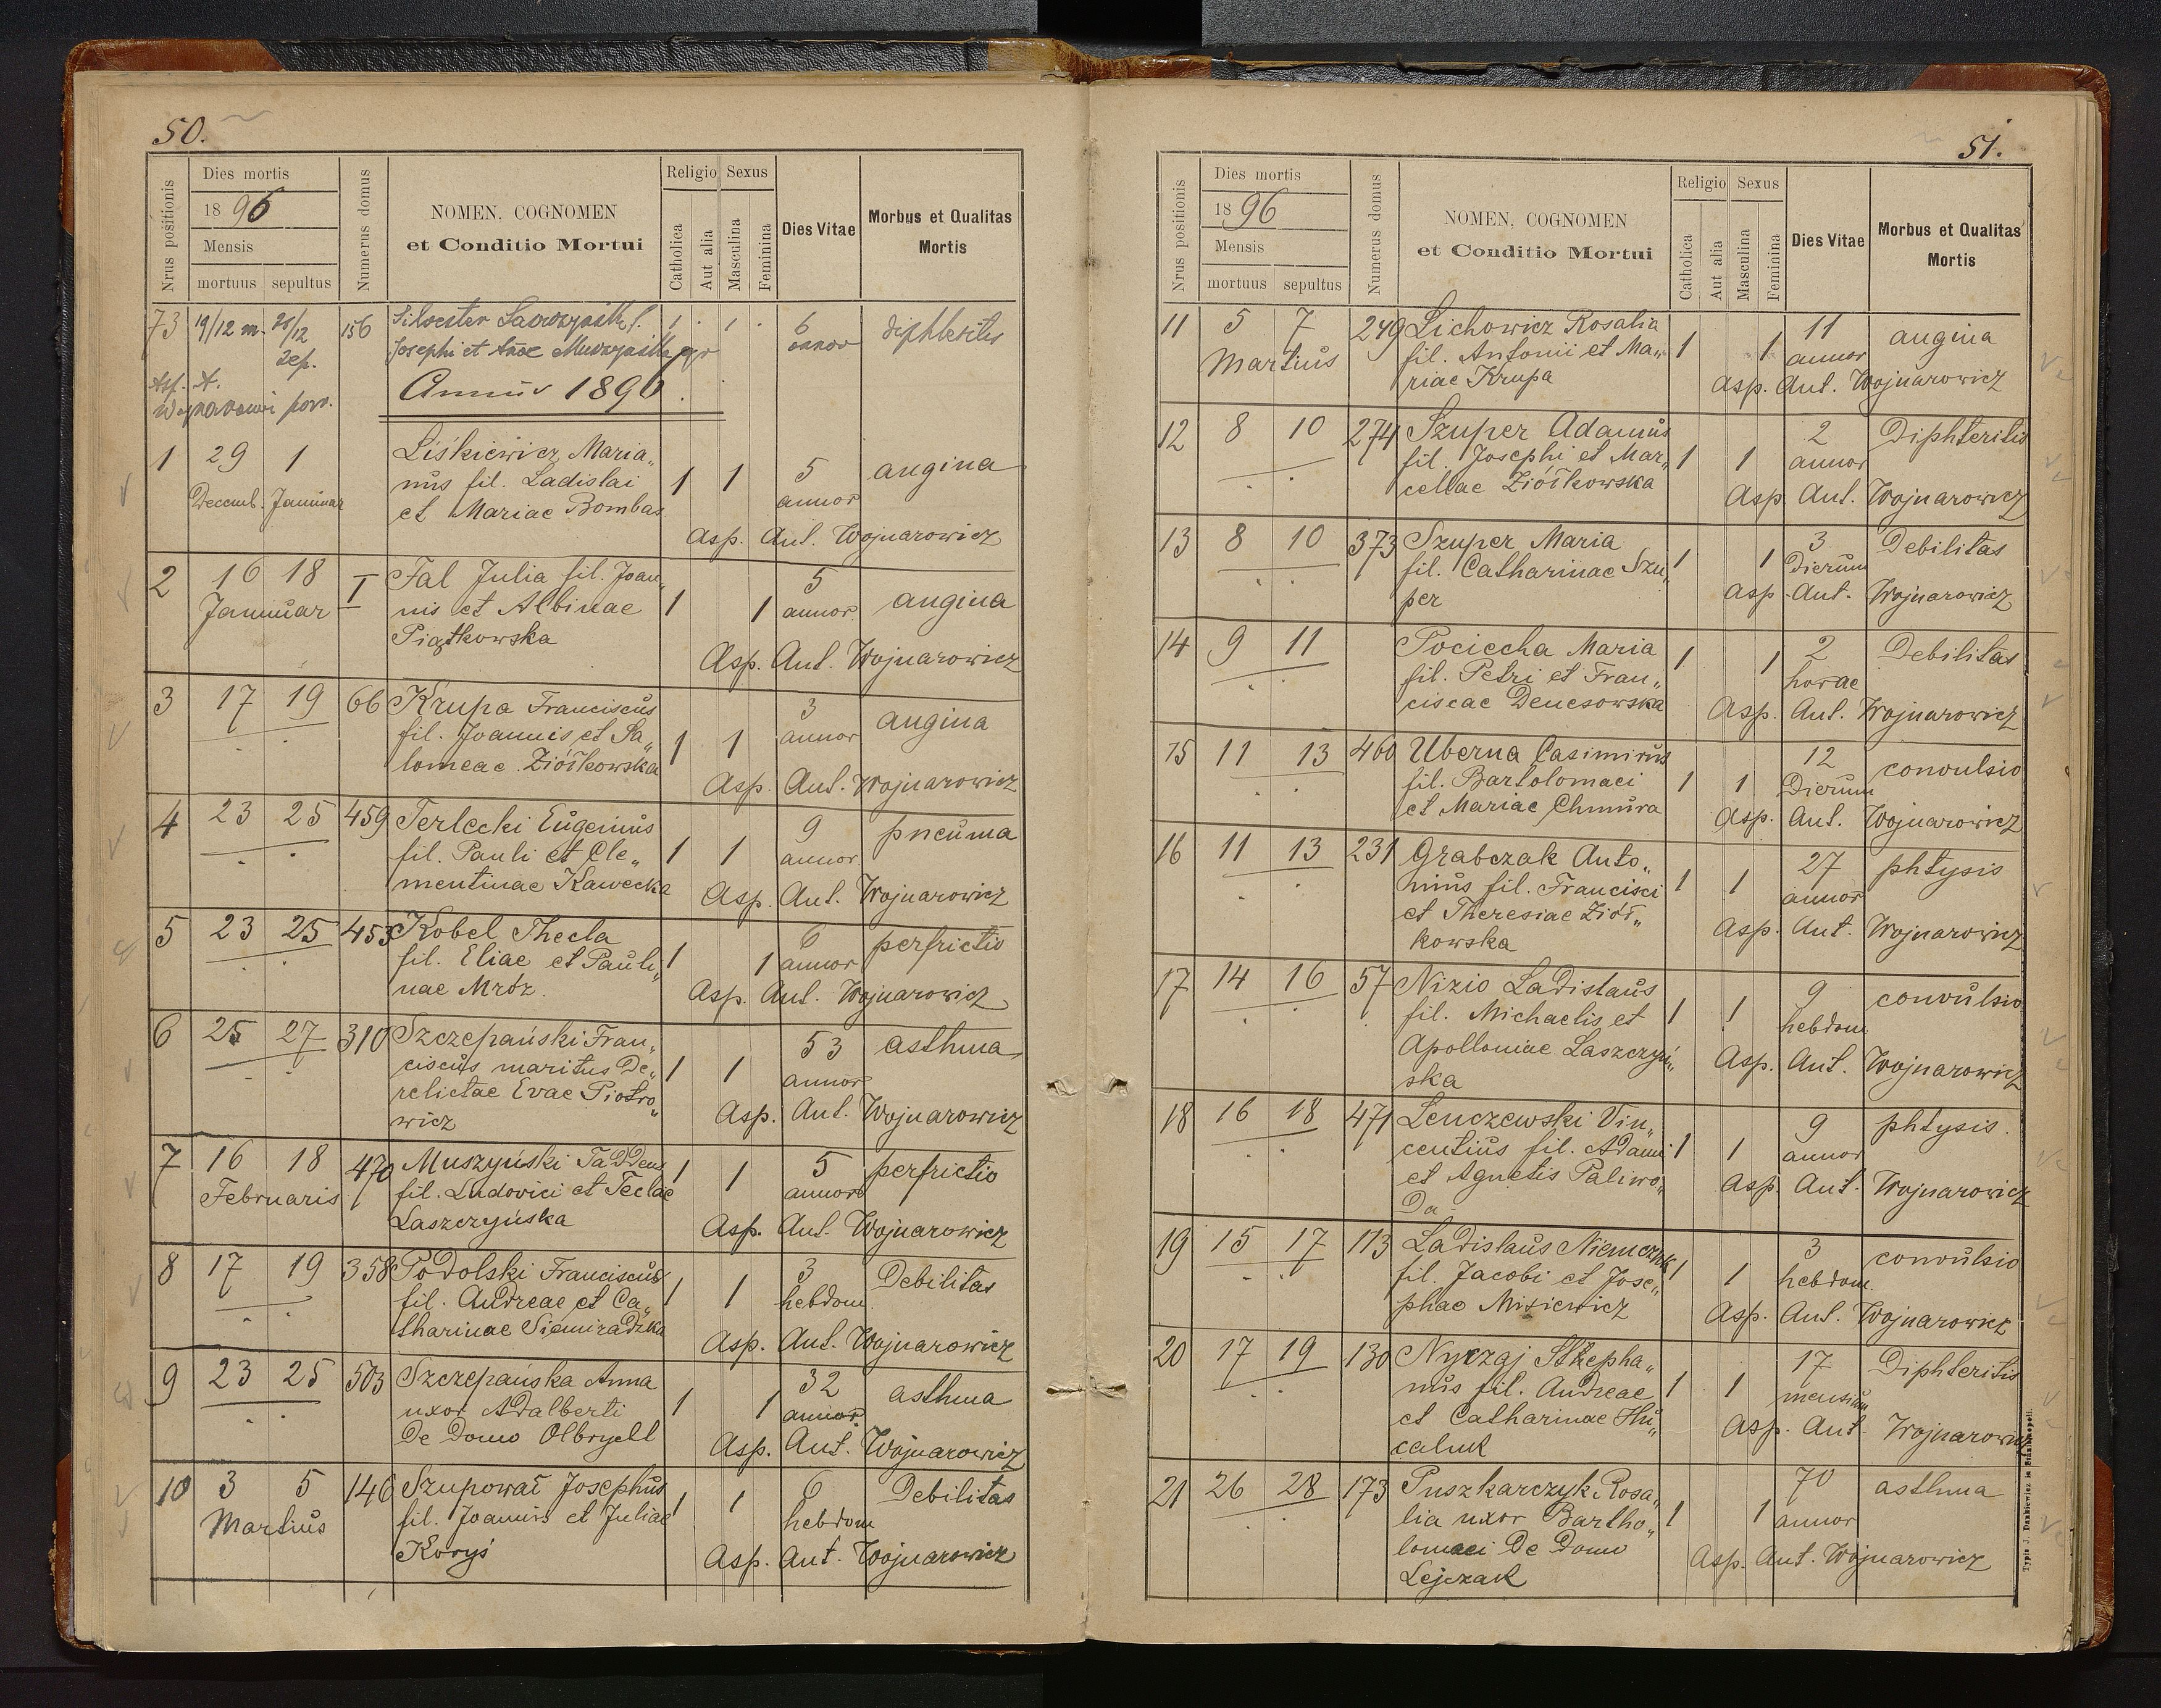 50.
Nrus positionis
Dies mortis
1896
Mensis
mortuus sepultus
Numerus domus
NOMEN, COGNOMEN
et Conditio Mortui
Religio Sexus
Catholica
Aut alia
Masculina
Feminina
Dies Vitae
Morbus et Qualitas
Mortis
73 19/12 m. 20/12 156 Silvester
sep.
Josephi et
6 annor
diphteritis
Annus 1896.
1 29 1 Liśkiewicz Maria„
nus fil. Ladislai 1 1 5 angina
Decemb. Januuar et Mariae Bombas annor
Asp. Ant. Wojnarowicz
2 16 18 I Fal Julia fil. Joan„ 5
Januuar nis et Albinae 1 1 annor angina
Piątkowska
Asp. Ant. Wojnarowicz
3 17 19 66 Krupa Franciscus 3 angina
fil. Joannis et Sa„ 1 1 annor
lomeae Ziółkowska
Asp. Ant. Wojnarowicz
4 23 25 459 Terlecki Eugenius 9 pneuma
fil. Pauli et Cle„ 1 1 annor
mentinae Kawecka
Asp. Ant. Wojnarowicz
5 23 25 453 Kobel Thecla 6 perfrictio
fil. Eliae et Pauli„ 1 1 annor
nae Mróz.
Asp. Ant. Wojnarowicz
6 25 27 310 Szczepański Fran„ 53 asthma
ciscus maritus De„ 1 1 annor
relictae Evae Piotro„
wicz
Asp. Ant. Wojnarowicz
7 16 18 470 Muszyński Taddeus 1 1 5 perfrictio
Februaris fil. Ludovici et Teclae annor
Laszczyńska
Asp. Ant. Wojnarowicz
8 17 19 358 Podolski Franciscus 3 Debilitas
fil. Andreae et Ca„ 1 1 hebdom.
tharinae Siemiradzka
Asp. Ant. Wojnarowicz
9 23 25 503 Szczepańska Anna 32 asthma
uxor Adalberti 1 1 annor
De Domo Olbrycht
Asp. Ant. Wojnarowicz
10 3 5 146 Szupował Josephus 6 Debilitas
Martius fil. Joannis et Juliae 1 1 hebdom
Koryś
Asp. Ant. Wojnarowicz
51.
Nrus positionis
Dies mortis
1896
Mensis
mortuus sepultus
Numerus domus
NOMEN, COGNOMEN
et Conditio Mortui
Religio Sexus
Catholica
Aut alia
Masculina
Feminina
Dies Vitae
Morbus et Qualitas
Mortis
11 5 7 249 Lichowicz Rosalia 11 angina
Martius fil. Antonii et Ma„ 1 1 annor
riae Krupa
Asp. Ant. Wojnarowicz
12 8 10 274 Szuper Adamus 2 Diphteritis
fil. Josephi et Mar„ 1 1 annor
cellae Ziółkowska
Asp. Ant. Wojnarowicz
13 8 10 373 Szuper Maria 3 Debilitas
fil. Catharinae Szu„ 1 1 Dierum
per
Asp. Ant. Wojnarowicz
14 9 11 Pociecha Maria 2 Debilitas
fil. Petri et Fran„ 1 1 horae
ciscae Denesowska
Asp. Ant. Wojnarowicz
15 11 13 460 Uberna Casimirus 12 convulsio
fil. Bartolomaei 1 1 Dierum
et Mariae Chmura
Asp. Ant. Wojnarowicz
16 11 13 231 Grabczak Anto„ 27 phtysis
nius fil. Francisci 1 1 annor
et Theresiae Ziół„
kowska
Asp. Ant. Wojnarowicz
17 14 16 57 Nizio Ladislaus 9 convulsio
fil. Michaelis et 1 1 hebdom
Apolloniae Laszczyń„
ska
Asp. Ant. Wojnarowicz
18 16 18 471 Lenczewski Vin„ 9 phtysis.
centius fil. Adami 1 1 annor
et Agnetis Paliwo„
Da
Asp. Ant. Wojnarowicz
19 15 17 113 Ladislaus Niemczyk 3 convulsio
fil. Jacobi et Jose„ 1 1 hebdom.
phae Misiewicz
Asp. Ant. Wojnarowicz
20 17 19 130 Nyczaj Stepha„ 17 Diphteritis
nus fil. Andreae 1 1 mensium
et Catharinae Hu„
caluk
Asp. Ant. Wojnarowicz
21 26 28 173 Puszkarczyk Rosa„ 70 asthma
lia uxor Bartho„ 1 1 annor
lomaei De Domo
Lejczak
Asp. Ant. Wojnarowicz